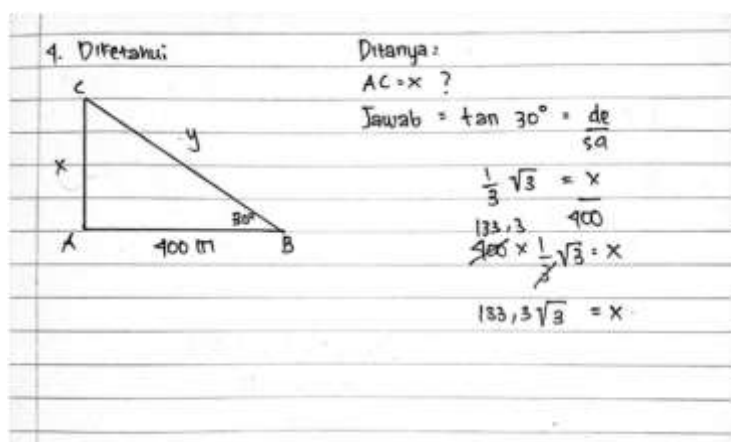 4. Diketahui
C
y
x
30°
A
400 m
B
Ditanya:
AC = x ?
Jawab = tan 30° = de/sa
1/3 √3 = x/400
133,3
400 × 1/3 √3 = x
133,3 √3 = x